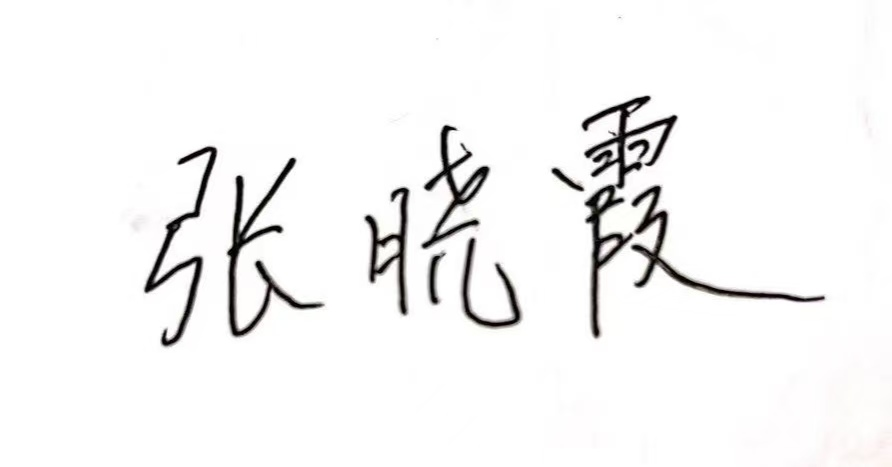 张晓霞